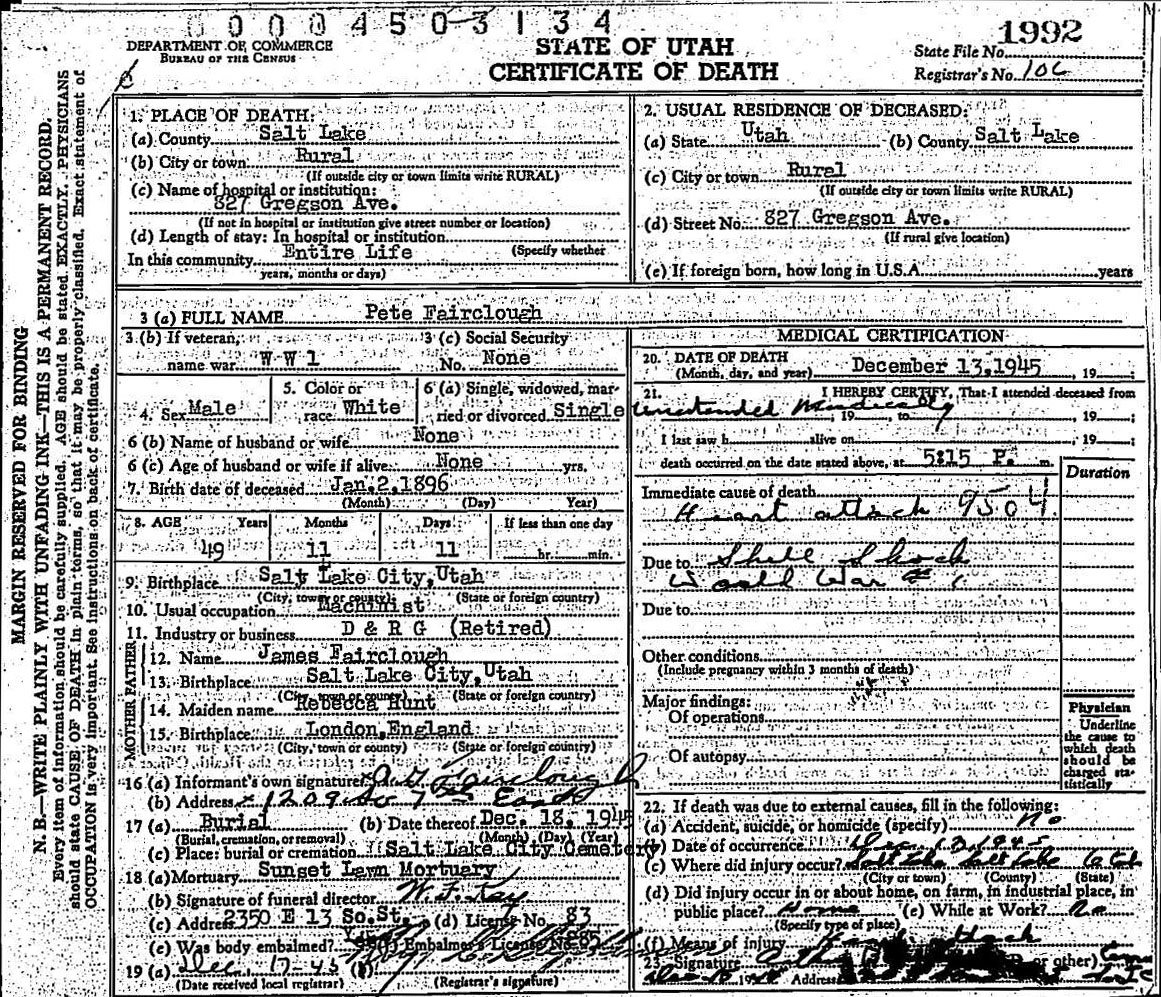 00004503134
1992
DEPARTMENT OF COMMERCE
BUREAU OF THE CENSUS
STATE OF UTAH
CERTIFICATE OF DEATH
State File No.
Registrar's No. 106
MARGIN RESERVED FOR BINDING
N. B.—WRITE PLAINLY WITH UNFADING INK—THIS IS A PERMANENT RECORD.
Every item of information should be carefully supplied. AGE should be stated EXACTLY. PHYSICIANS
should state CAUSE OF DEATH in plain terms, so that it may be properly classified. Exact statement of
OCCUPATION is very important. See instructions on back of certificate.
1. PLACE OF DEATH:
(a) County Salt Lake
(b) City or town Rural
(If outside city or town limits write RURAL)
(c) Name of hospital or institution:
827 Gregson Ave.
(If not in hospital or institution give street number or location)
(d) Length of stay: In hospital or institution
(Specify whether
In this community Entire Life
years, months or days)
2. USUAL RESIDENCE OF DECEASED:
(a) State Utah (b) County Salt Lake
(c) City or town Rural
(If outside city or town limits write RURAL)
(d) Street No. 827 Gregson Ave.
(If rural give location)
(e) If foreign born, how long in U.S.A. years
3 (a) FULL NAME Pete Fairclough
3 (b) If veteran, name war W W 1
3 (c) Social Security No. None
4. Sex Male
5. Color or race White
6 (a) Single, widowed, married or divorced Single
6 (b) Name of husband or wife None
6 (c) Age of husband or wife if alive None yrs.
7. Birth date of deceased Jan. 2, 1896
(Month) (Day) Year)
8. AGE Years Months Days If less than one day
49 11 11 hr. min.
9. Birthplace Salt Lake City, Utah
(City, town or county) (State or foreign country)
10. Usual occupation Machinist
11. Industry or business D & R G (Retired)
FATHER
12. Name James Fairclough
13. Birthplace Salt Lake City, Utah
(City, town or county) (State or foreign country)
MOTHER
14. Maiden name Rebecca Hunt
15. Birthplace London, England
(City, town or county) (State or foreign country)
16 (a) Informant's own signature Fairclough
(b) Address 1209 So 7th East
17 (a) Burial (b) Date thereof Dec. 18, 1945
(Burial, cremation, or removal) (Month) (Day) (Year)
(c) Place: burial or cremation Salt Lake City Cemetery
18 (a) Mortuary Sunset Lawn Mortuary
(b) Signature of funeral director
(c) Address 2350 E 13 So. St. (d) License No. 83
(e) Was body embalmed? (f) Embalmer's License No.
19 (a) Dec. 17-45 (b)
(Date received local registrar) (Registrar's signature)
MEDICAL CERTIFICATION
20. DATE OF DEATH December 13, 1945, 19 ;
(Month, day, and year)
21. I HEREBY CERTIFY, That I attended deceased from
Unattended Medically, 19 to , 19 ;
I last saw h alive on , 19 ;
death occurred on the date stated above, at 5:15 P. m.
Duration
Immediate cause of death
Heart attack 9504
Due to Shell Shock
World War # 1
Due to
Other conditions
(Include pregnancy within 3 months of death)
Major findings:
Of operations
Of autopsy
Physician
Underline
the cause to
which death
should be
charged sta-
tistically
22. If death was due to external causes, fill in the following:
(a) Accident, suicide, or homicide (specify) No
(b) Date of occurrence Dec 13 1945
(c) Where did injury occur? Salt Lake Salt Lake Utah
(City or town) (County) (State)
(d) Did injury occur in or about home, on farm, in industrial place, in
public place? Home (e) While at Work? No
(Specify type of place)
(f) Means of injury Heart attack
23. Signature or other)
Address